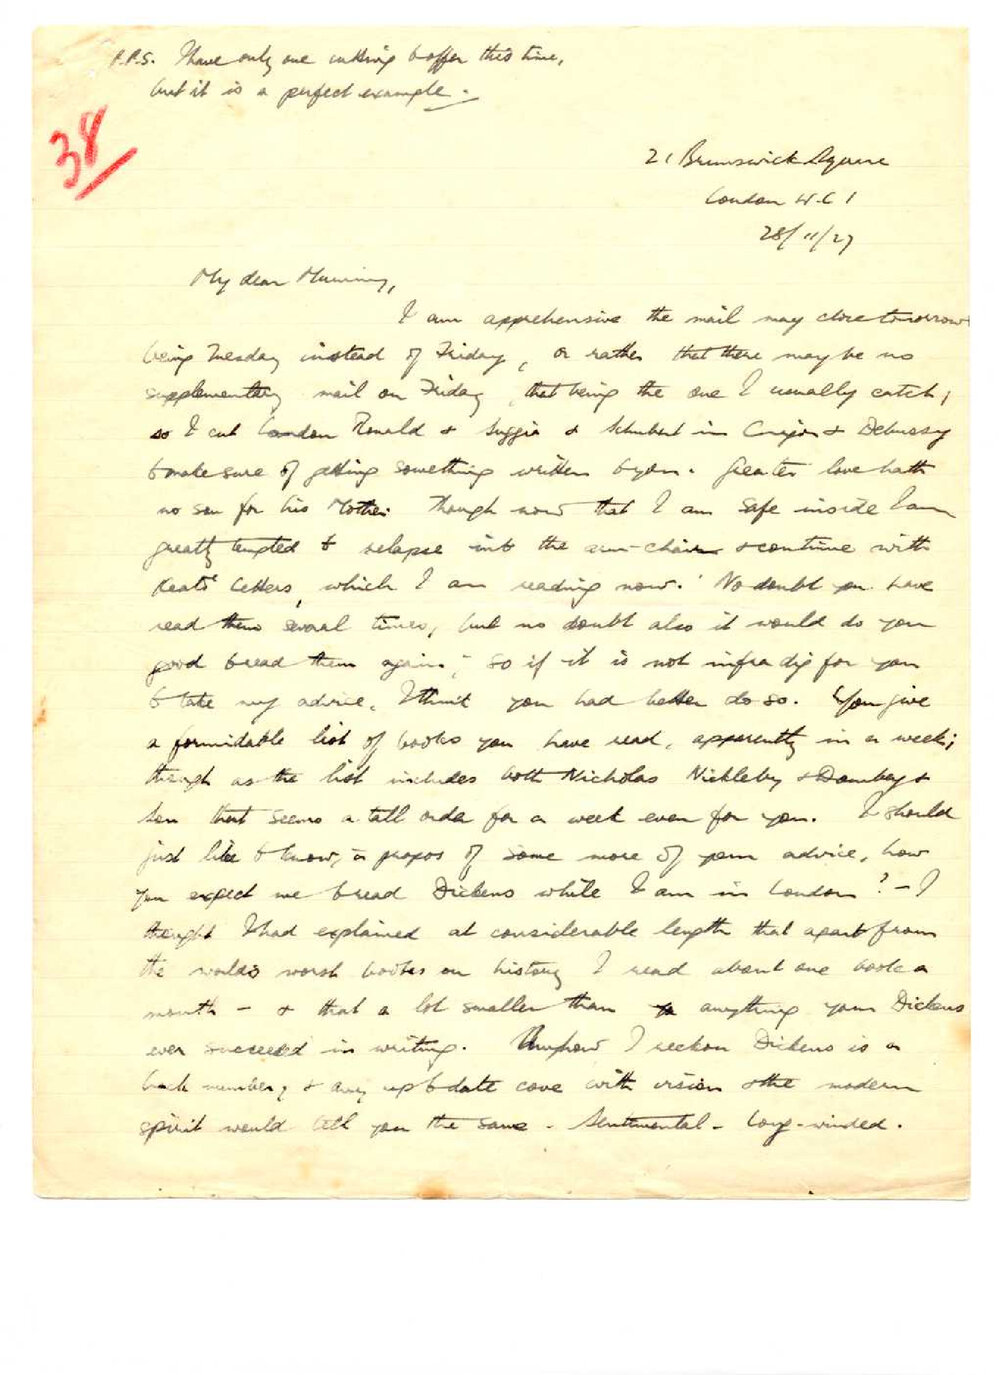 P.P.S. I have only one cutting to offer this time,
but it is a perfect example.
38
21 Brunswick Square
London W.C 1
28/11/27
My dear Mummy,
I am apprehensive the mail may close tomorrow
being Tuesday instead of Friday, or rather that there may be no
supplementary mail on Friday, that being the one I usually catch;
so I cut Landon Ronald & Suggia & Schubert in & Debussy
to make sure of getting something written to you. Greater love hath
no son for his Mother. Though now that I am safe inside I am
greatly tempted to relapse into the arm-chair & continue with
Keats' Letters, which I am reading now. No doubt you have
read them several times, but no doubt also it would do you
good to read them again; so if it is not infra dig for you
to take my advice, I think you had better do so. You give
a formidable list of books you have read, apparently in a week;
though as the list includes both Nicholas Nickleby & Dombey &
Son that seems a tall order for a week even for you. I should
just like to know, à propos of some more of your advice, how
you expect me to read Dickens while I am in London? - I
thought I had explained at considerable length that apart from
the world's worst books on history I read about one book a
month - & that a lot smaller than anything your Dickens
ever succeeded in writing. Anyhow I reckon Dickens is a
back number, & any up to date cove with vision & the modern
spirit would tell you the same - Sentimental - Long-winded.